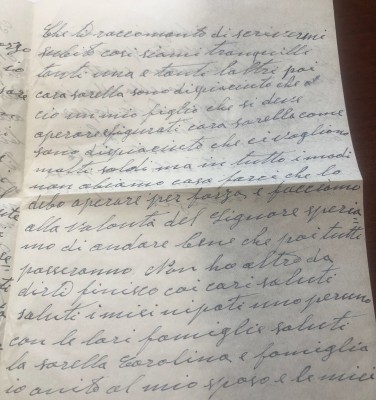 Che ti raccomando di scrivermi
subito cosi siami tranquilli
tanti una e tanti laltri poi
cara sorella sono dispiaciuto che ò
cio un mio figlio che si deve
operare figurati cara sorella come
sono dispiaciuto che ci vogliono
molto soldi ma in tutto i modi
non abiamo cosa farci che lo
debo operare per forza e facciamo
alla volontà del Signore speria
mo di andare bene che poi tutti
passeranno Non ho altro da
dirti finisco coi cari saluti
saluti i miei nipoti uno per uno
con le lori famiglie saluti
la sorella Carolina e famiglia
io unito al mio sposo e le miei